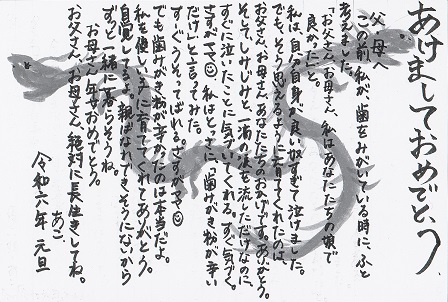 あけましておめでとう
父、母へ
この前、私が歯をみがいている時に、ふと
考えました。
「お父さん、お母さん、私はあなたたちの娘で
良かった」と。
私は、自分自身が良い奴すぎて泣けました。
でも、そう思えるように育ててくれたのは
お父さん、お母さん、あなたたちのおかげです。ありがとう。
そして、しみじみと、一滴の涙を流しただけなのに、
すぐに泣いたことに気づいてくれる。すぐ気づく。
さすがです☺ 私はとっさに「歯みがき粉が辛い
だけ」と言ってみた。
すぐ、うそってばれる。さすがです☺
でも歯みがき粉が辛かったのは本当だよ。
私を優しい子に育ててくれてありがとう。
自覚してるよ。親ばなれできそうにないから
ずっと一緒に暮らそうね。
お母さん、年女おめでとう。
お父さん、お母さん、絶対に長生きしてね。
あこ
令和六年 元旦